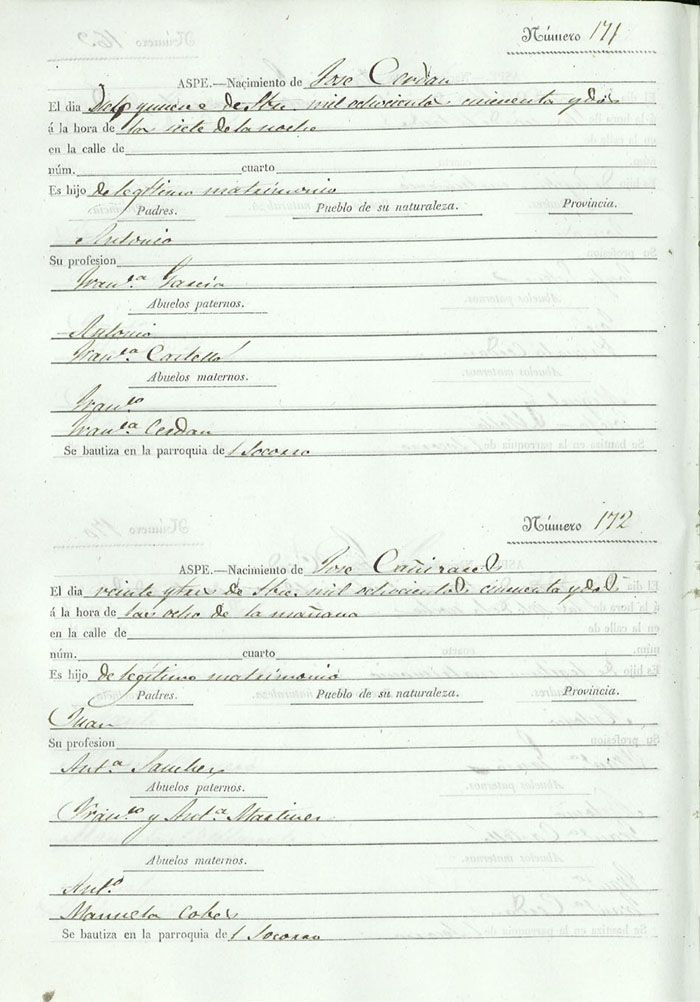 Número 171
ASPE.—Nacimiento de Jose Cerdan
El dia quince de Sbre. mil ochocientos cincuenta y dos
á la hora de las siete de la noche
en la calle de
núm. cuarto
Es hijo de legítimo matrimonio
Padres. Pueblo de su naturaleza. Provincia.
Antonio
Su profesion
Fran.ca Garcia
Abuelos paternos.
Antonio
Fran.ca Castelló
Abuelos maternos.
Fran.co
Fran.ca Cerdan
Se bautiza en la parroquia de l Socorro
Número 172
ASPE.—Nacimiento de Jose Cañizares
El dia veinte y tres de Sbre. mil ochocientos cincuenta y dos
á la hora de las ocho de la mañana
en la calle de
núm. cuarto
Es hijo de legítimo matrimonio
Padres. Pueblo de su naturaleza. Provincia.
Juan
Su profesion
Ant.a Sanchez
Abuelos paternos.
Fran.co y Ant.a Martinez
Abuelos maternos.
Ant.o
Manuela
Se bautiza en la parroquia de l Socorro